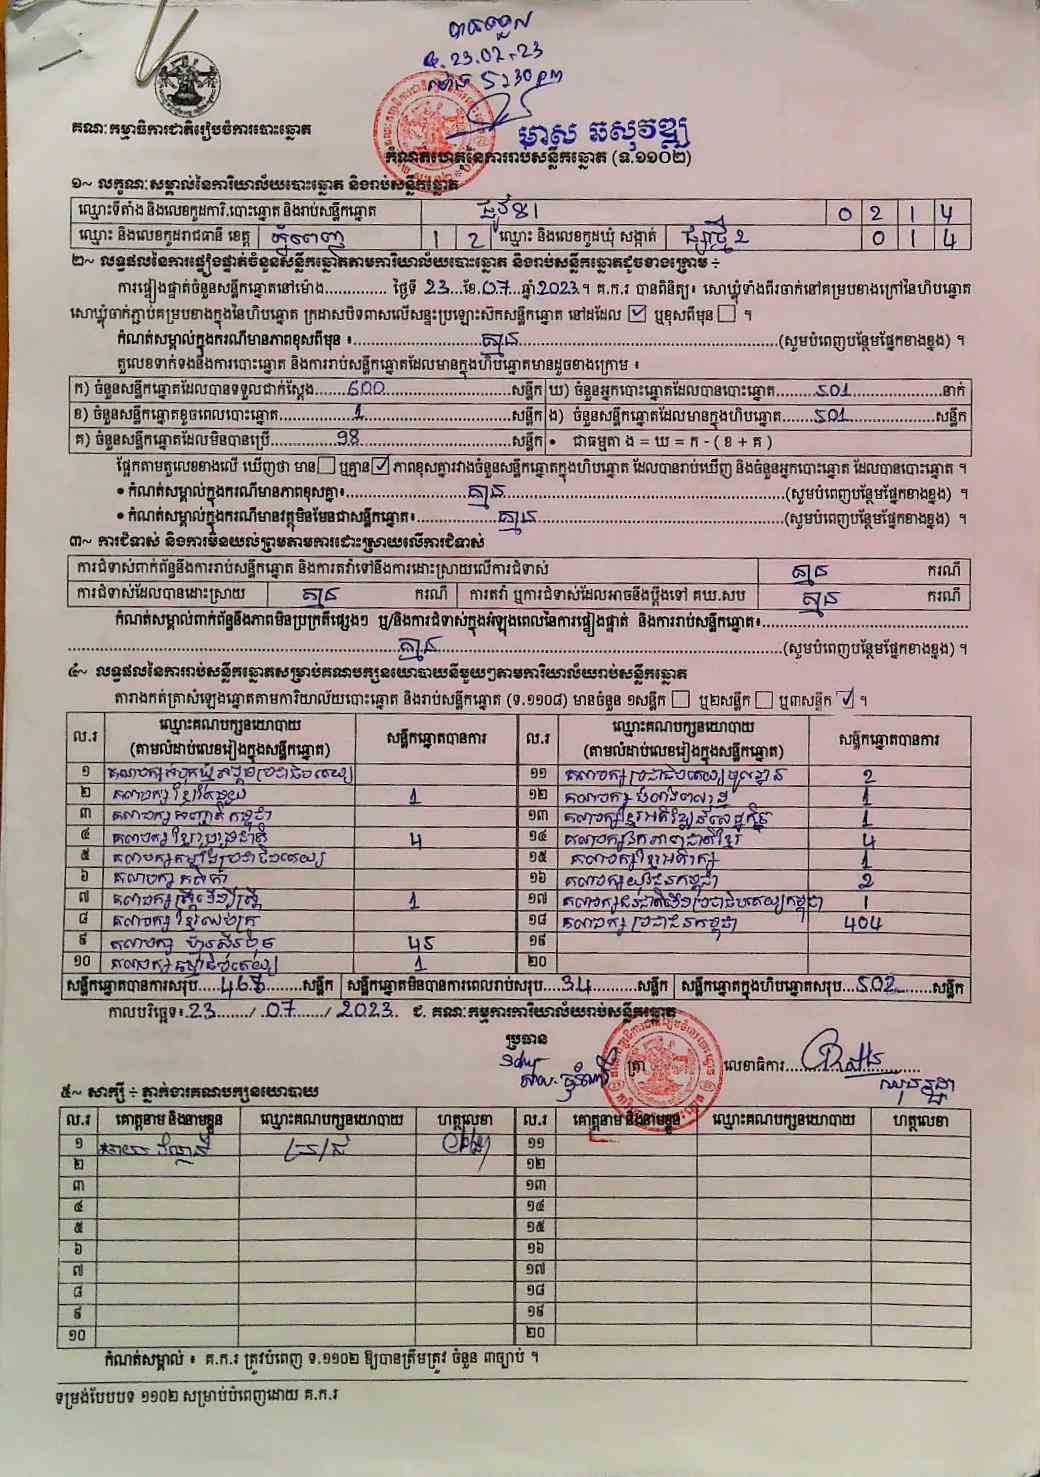 បានទទួល
ថ្ងៃ. 23.07.23
ម៉ោង 5:30 pm
គណៈកម្មាធិការជាតិរៀបចំការបោះឆ្នោត
មាស ឆសុវឌ្ឍ
កំណត់ហេតុនៃការរាប់សន្លឹកឆ្នោត (ទ.១១០២)
១~ លក្ខណៈសម្គាល់នៃការិយាល័យបោះឆ្នោត និងរាប់សន្លឹកឆ្នោត
ឈ្មោះទីតាំង និងលេខកូដការិ.បោះឆ្នោត និងរាប់សន្លឹកឆ្នោត 0 2 1 4
ឈ្មោះ និងលេខកូដរាជធានី ខេត្ត ភ្នំពេញ 1 2 ឈ្មោះ និងលេខកូដឃុំ សង្កាត់ ផ្សារថ្មី 2 0 1 4
២~ លទ្ធផលនៃការផ្ទៀងផ្ទាត់ចំនួនសន្លឹកឆ្នោតតាមការិយាល័យបោះឆ្នោត និងរាប់សន្លឹកឆ្នោតដូចខាងក្រោម ៖
ការផ្ទៀងផ្ទាត់ចំនួនសន្លឹកឆ្នោតនៅម៉ោង.............. ថ្ងៃទី 23 ...ខែ.07...ឆ្នាំ 2023 ។ គ.ក.រ បានពិនិត្យ៖ សោឃ្លុំទាំងពីរចាក់នៅគម្របខាងក្រៅនៃហិបឆ្នោត
សោឃ្លុំចាក់ភ្ជាប់គម្របខាងក្នុងនៃហិបឆ្នោត ក្រដាសបិទពាសលើសន្ទះប្រឡោះស៊កសន្លឹកឆ្នោត នៅដដែល ☑ ឬខុសពីមុន ☐ ។
កំណត់សម្គាល់ក្នុងករណីមានភាពខុសពីមុន ៖ គ្មាន (សូមបំពេញបន្ថែមផ្នែកខាងខ្នង) ។
តួលេខទាក់ទងនឹងការបោះឆ្នោត និងការរាប់សន្លឹកឆ្នោតដែលមានក្នុងហិបឆ្នោតមានដូចខាងក្រោម ៖
ក) ចំនួនសន្លឹកឆ្នោតដែលបានទទួលជាក់ស្តែង 600 សន្លឹក ឃ) ចំនួនអ្នកបោះឆ្នោតដែលបានបោះឆ្នោត 501 នាក់
ខ) ចំនួនសន្លឹកឆ្នោតខូចពេលបោះឆ្នោត 1 សន្លឹក ង) ចំនួនសន្លឹកឆ្នោតដែលមានក្នុងហិបឆ្នោត 501 សន្លឹក
គ) ចំនួនសន្លឹកឆ្នោតដែលមិនបានប្រើ 98 សន្លឹក • ជាធម្មតា ង = ឃ = ក - ( ខ + គ )
ផ្អែកតាមតួលេខខាងលើ ឃើញថា មាន ☐ ឬគ្មាន ☑ ភាពខុសគ្នារវាងចំនួនសន្លឹកឆ្នោតក្នុងហិបឆ្នោត ដែលបានរាប់ឃើញ និងចំនួនអ្នកបោះឆ្នោត ដែលបានបោះឆ្នោត ។
• កំណត់សម្គាល់ក្នុងករណីមានភាពខុសគ្នា៖ គ្មាន (សូមបំពេញបន្ថែមផ្នែកខាងខ្នង) ។
• កំណត់សម្គាល់ក្នុងករណីមានវត្ថុមិនមែនជាសន្លឹកឆ្នោត៖ គ្មាន (សូមបំពេញបន្ថែមផ្នែកខាងខ្នង) ។
៣~ ការជំទាស់ និងការមិនយល់ព្រមតាមការដោះស្រាយលើការជំទាស់
ការជំទាស់ពាក់ព័ន្ធនឹងការរាប់សន្លឹកឆ្នោត និងការតវ៉ាទៅនឹងការដោះស្រាយលើការជំទាស់ គ្មាន ករណី
ការជំទាស់ដែលបានដោះស្រាយ គ្មាន ករណី ការតវ៉ា ឬការជំទាស់ដែលអាចនឹងប្តឹងទៅ គឃ.សប គ្មាន ករណី
កំណត់សម្គាល់ពាក់ព័ន្ធនឹងភាពមិនប្រក្រតីផ្សេងៗ ឬ/និងការជំទាស់ក្នុងអំឡុងពេលនៃការផ្ទៀងផ្ទាត់ និងការរាប់សន្លឹកឆ្នោត៖
គ្មាន (សូមបំពេញបន្ថែមផ្នែកខាងខ្នង) ។
៤~ លទ្ធផលនៃការរាប់សន្លឹកឆ្នោតសម្រាប់គណបក្សនយោបាយនីមួយៗតាមការិយាល័យរាប់សន្លឹកឆ្នោត
តារាងកត់ត្រាសំឡេងឆ្នោតតាមការិយាល័យបោះឆ្នោត និងរាប់សន្លឹកឆ្នោត (ទ.១១០៨) មានចំនួន ១សន្លឹក ☐ ឬ២សន្លឹក ☐ ឬ៣សន្លឹក ☑ ។
ល.រ ឈ្មោះគណបក្សនយោបាយ (តាមលំដាប់លេខរៀងក្នុងសន្លឹកឆ្នោត) សន្លឹកឆ្នោតបានការ ល.រ ឈ្មោះគណបក្សនយោបាយ (តាមលំដាប់លេខរៀងក្នុងសន្លឹកឆ្នោត) សន្លឹកឆ្នោតបានការ
១ គណបក្សសំបុកឃ្មុំសង្គមប្រជាធិបតេយ្យ ១១ គណបក្សប្រជាធិបតេយ្យមូលដ្ឋាន 2
២ គណបក្សខ្មែរតែមួយ 1 ១២ គណបក្សដំណាំងកសិករ 1
៣ គណបក្សសញ្ជាតិកម្ពុជា ១៣ គណបក្សខ្មែរអភិវឌ្ឍន៍សេដ្ឋកិច្ច 1
៤ គណបក្សខ្មែររួបរួមជាតិ 4 ១៤ គណបក្សឯកភាពជាតិខ្មែរ 4
៥ គណបក្សកម្លាំងប្រជាធិបតេយ្យ ១៥ គណបក្សខ្មែរអភិរក្ស 1
៦ គណបក្សកសិករ ១៦ គណបក្សយុវជនកម្ពុជា 2
៧ គណបក្សស្ត្រីដើម្បីស្ត្រី 1 ១៧ គណបក្សជនជាតិដើមប្រជាធិបតេយ្យកម្ពុជា 1
៨ គណបក្សខ្មែរឈប់ក្រ ១៨ គណបក្សប្រជាជនកម្ពុជា 404
៩ គណបក្ស ហ៊្វុនស៊ិនប៉ិច 45 ១៩
១០ គណបក្សធម្មាធិបតេយ្យ 1 ២០
សន្លឹកឆ្នោតបានការសរុប 467 សន្លឹក សន្លឹកឆ្នោតមិនបានការពេលរាប់សរុប 34 សន្លឹក សន្លឹកឆ្នោតក្នុងហិបឆ្នោតសរុប 502 សន្លឹក
កាលបរិច្ឆេទ៖ 23 / 07 / 2023. ជ. គណៈកម្មការការិយាល័យរាប់សន្លឹកឆ្នោត
ប្រធាន
ត្រា លេខាធិការ
៥~ សាក្សី ៖ ភ្នាក់ងារគណបក្សនយោបាយ
ល.រ គោត្តនាម និងនាមខ្លួន ឈ្មោះគណបក្សនយោបាយ ហត្ថលេខា ល.រ គោត្តនាម និងនាមខ្លួន ឈ្មោះគណបក្សនយោបាយ ហត្ថលេខា
១ ប្រ/ជ ១១
២ ១២
៣ ១៣
៤ ១៤
៥ ១៥
៦ ១៦
៧ ១៧
៨ ១៨
៩ ១៩
១០ ២០
កំណត់សម្គាល់ ៖ គ.ក.រ ត្រូវបំពេញ ទ.១១០២ ឱ្យបានត្រឹមត្រូវ ចំនួន ៣ច្បាប់ ។
ទម្រង់បែបបទ ១១០២ សម្រាប់បំពេញដោយ គ.ក.រ